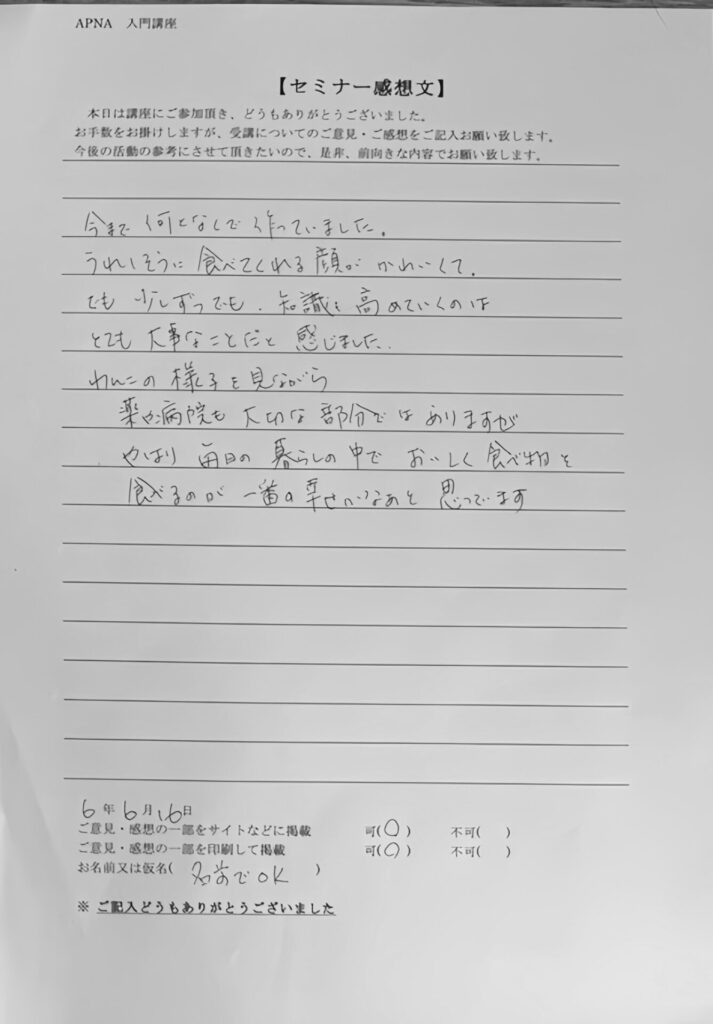 APNA 入門講座
【セミナー感想文】
本日は講座にご参加頂き、どうもありがとうございました。
お手数をお掛けしますが、受講についてのご意見・ご感想をご記入お願い致します。
今後の活動の参考にさせて頂きたいので、是非、前向きな内容でお願い致します。
今まで 何となくで 作っていました。
うれしそうに 食べてくれる 顔が かわいくて。
でも 少しずつでも、知識を 高めていくのは
とても 大事なことだと 感じました。
わんこの 様子を 見ながら
薬や病院も 大切な 部分では ありますが
やはり 毎日の 暮らしの 中で おいしく 食べ物を
食べるのが 一番の 幸せかなぁと 思ってます
6年6月16日
ご意見・感想の一部をサイトなどに掲載 可(○) 不可( )
ご意見・感想の一部を印刷して掲載 可(○) 不可( )
お名前又は仮名( 名前でOK )
※ ご記入どうもありがとうございました